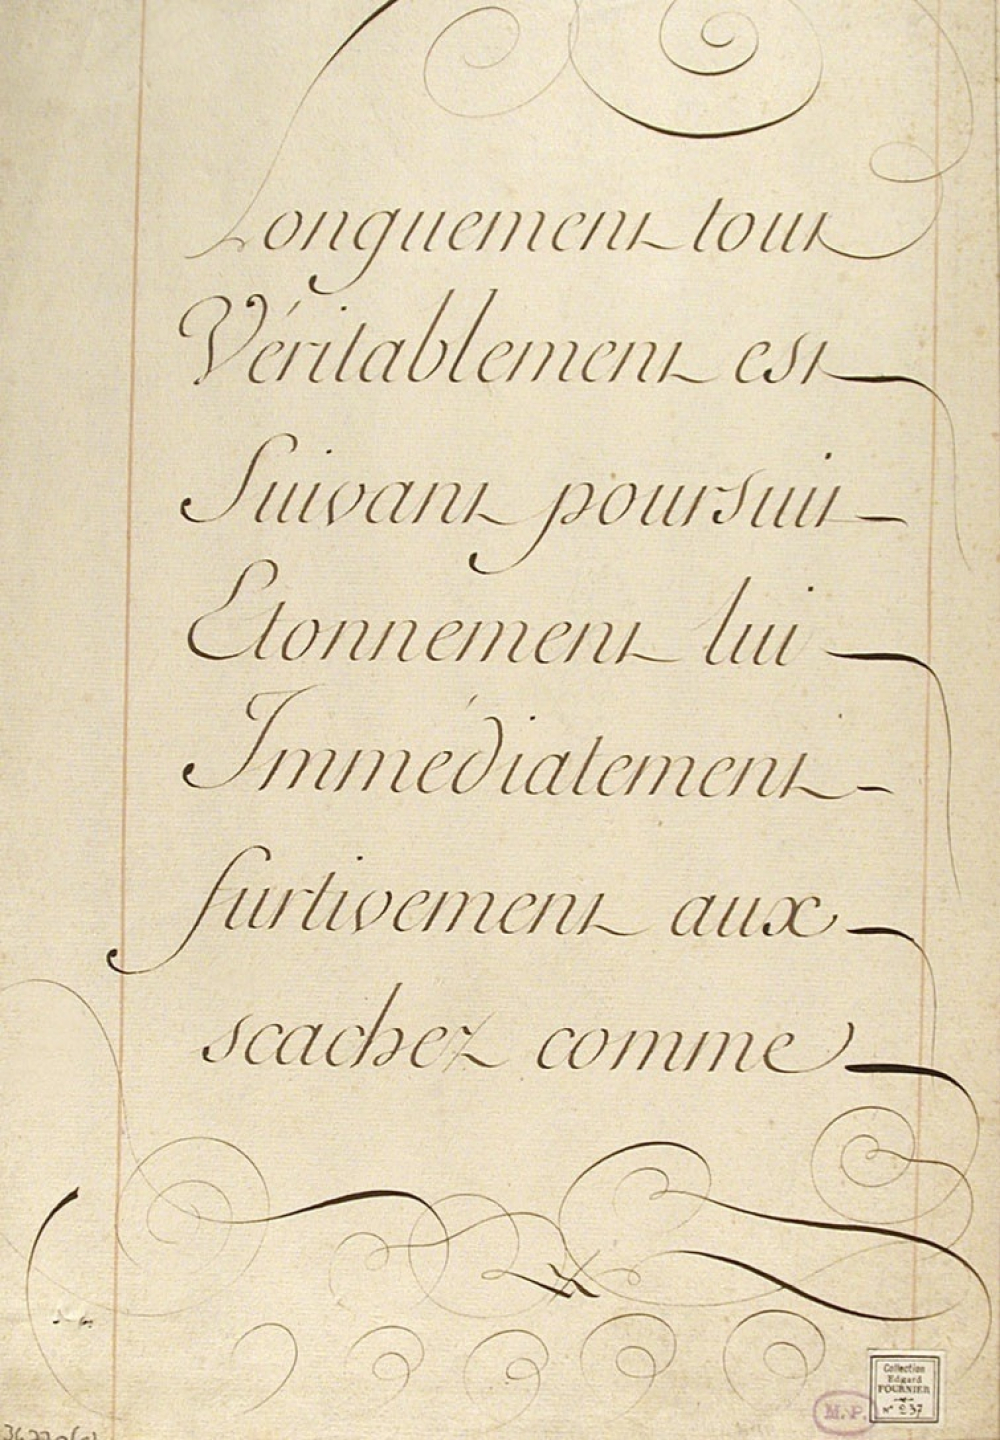 Longuement tout
Véritablement est
Suivant poursuit
Etonnement lui
Immédiatement
furtivement aux
scachez comme
Collection
Edgard
FOURNIER
N° 237
M. P.